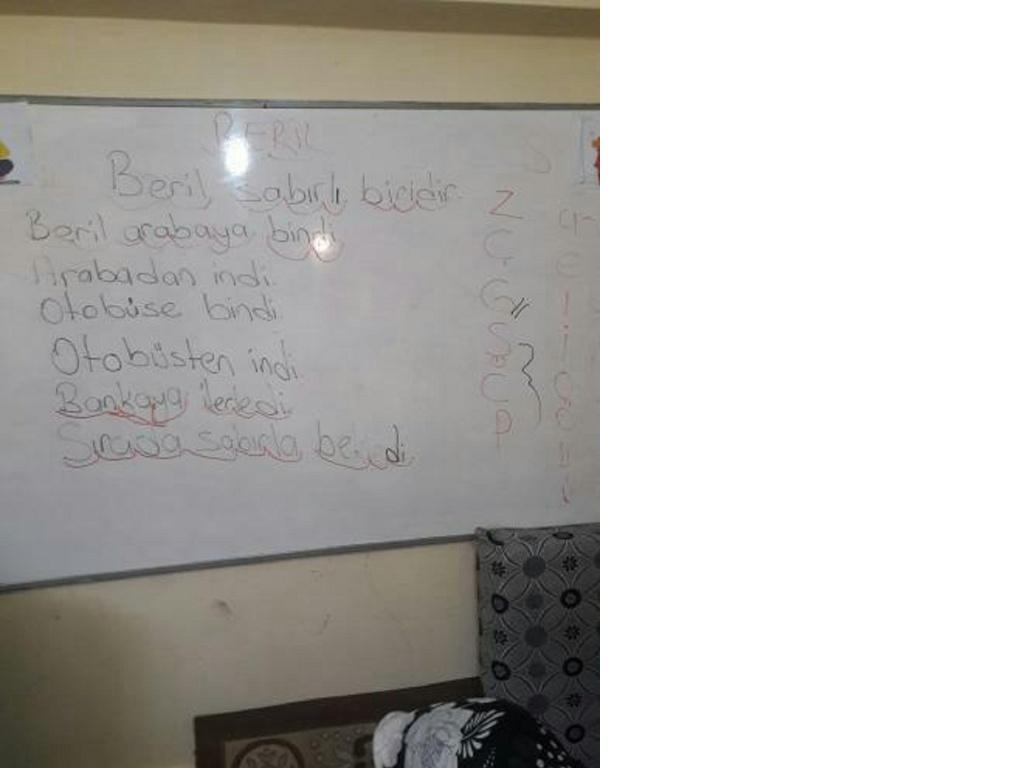 BERİL
Beril, sabırlı biridir.
Beril arabaya bindi
Arabadan indi.
Otobüse bindi.
Otobüsten indi.
Bankaya ilerledi.
Sırada sabırla bekledi.
Z
Ç
G
S
C
P
e
ı
i
O
Ö
u
ü